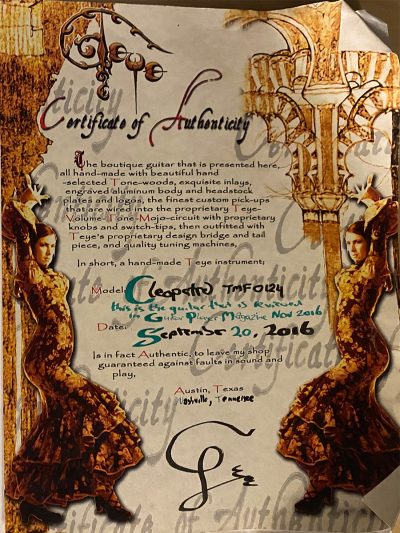 Certificate of Authenticity
The boutique guitar that is presented here,
all hand-made with beautiful hand
-selected Tone-woods, exquisite inlays,
engraved aluminum body and headstock
plates and logos, the finest custom pick-ups
that are wired into the proprietary Teye-
Volume-Tone-Mojo-circuit with proprietary
knobs and switch-tips, then outfitted with
Teye's proprietary design bridge and tail
piece, and quality tuning machines,
In short, a hand-made Teye instrument;
Model: Cleopatra TMF0124
this is the guitar that is reviewed
in Guitar Player Magazine Nov 2016
Date: September 20, 2016
Is in fact Authentic, to leave my shop
guaranteed against faults in sound and
play,
Austin, Texas
Nashville, Tennessee